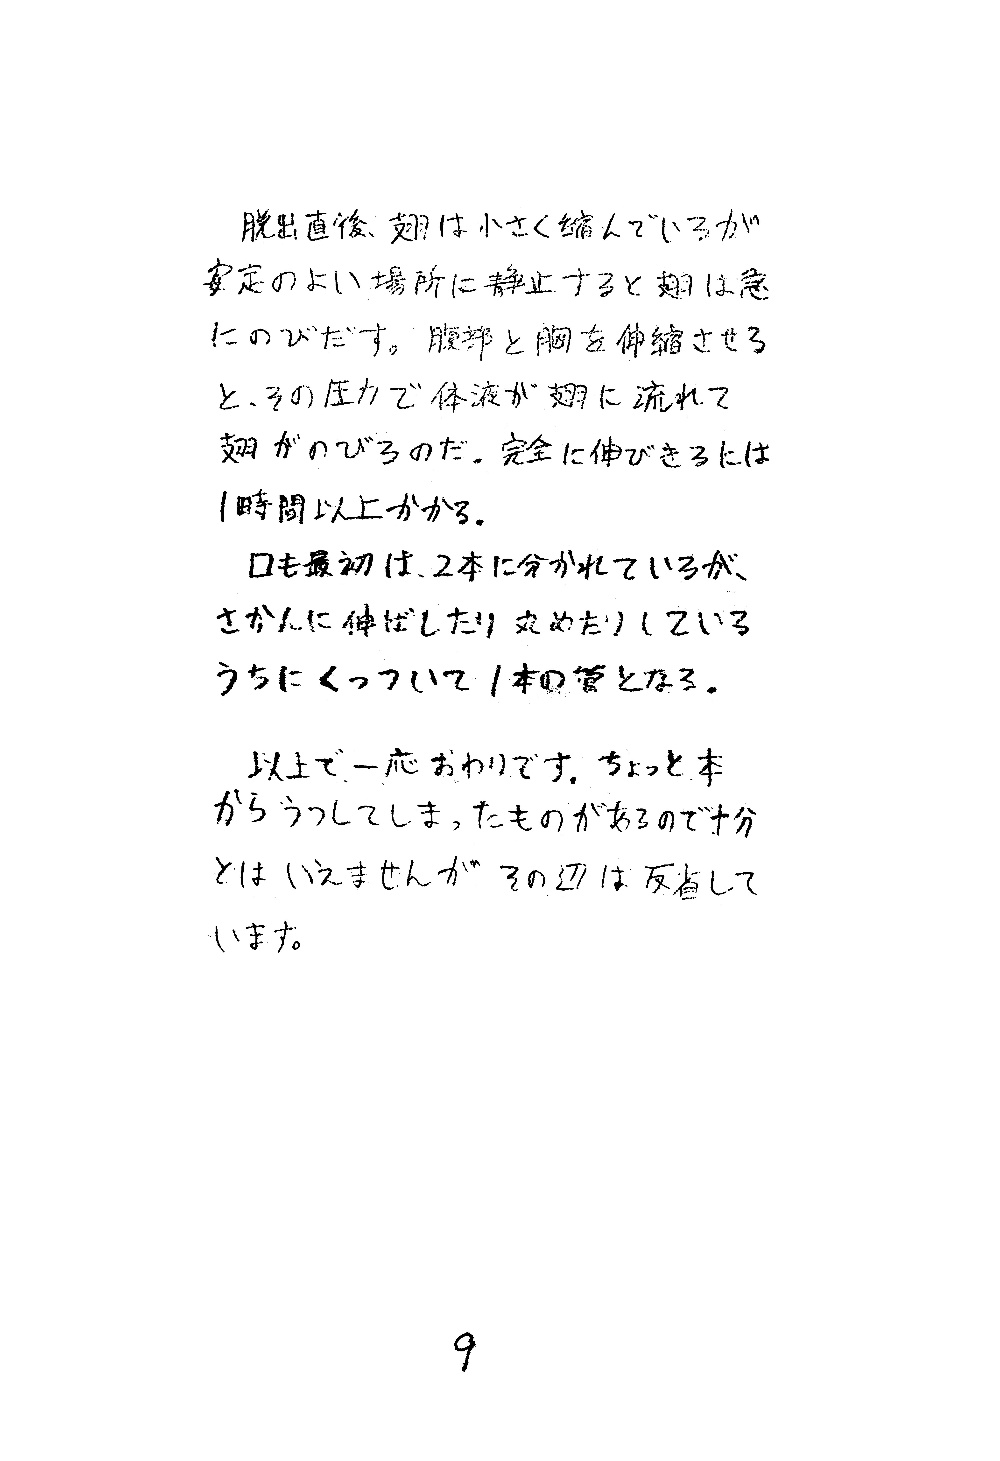 脱出直後、翅は小さく縮んでいるが
安定のよい場所に静止すると翅は急
にのびだす。腹部と胸を伸縮させる
と、その圧力で体液が翅に流れて
翅がのびるのだ。完全に伸びきるには
1時間以上かかる。
口も最初は、2本に分かれているが、
さかんに伸ばしたり丸めたりしている
うちにくっついて1本の管となる。
以上で一応おわりです。ちょっと本
からうつしてしまったものがあるので十分
とはいえませんがその辺は反省して
います。
9